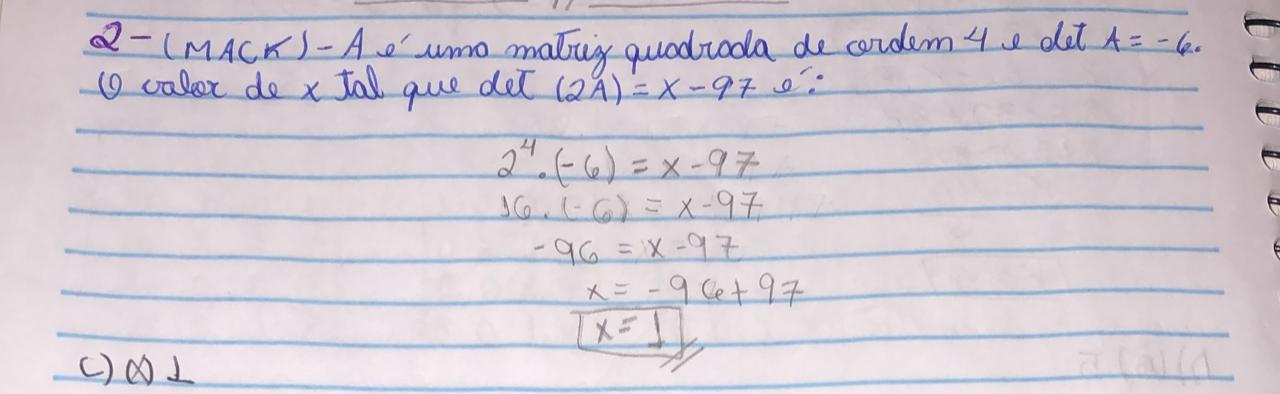 2-(MACK)-A é uma matriz quadrada de ordem 4 e det A = -6.
O valor de x tal que det (2A) = x - 97 é:
2⁴.(-6) = x-97
16.(-6) = x-97
-96 = x-97
x = -96+97
x = 1
c) (x) 1